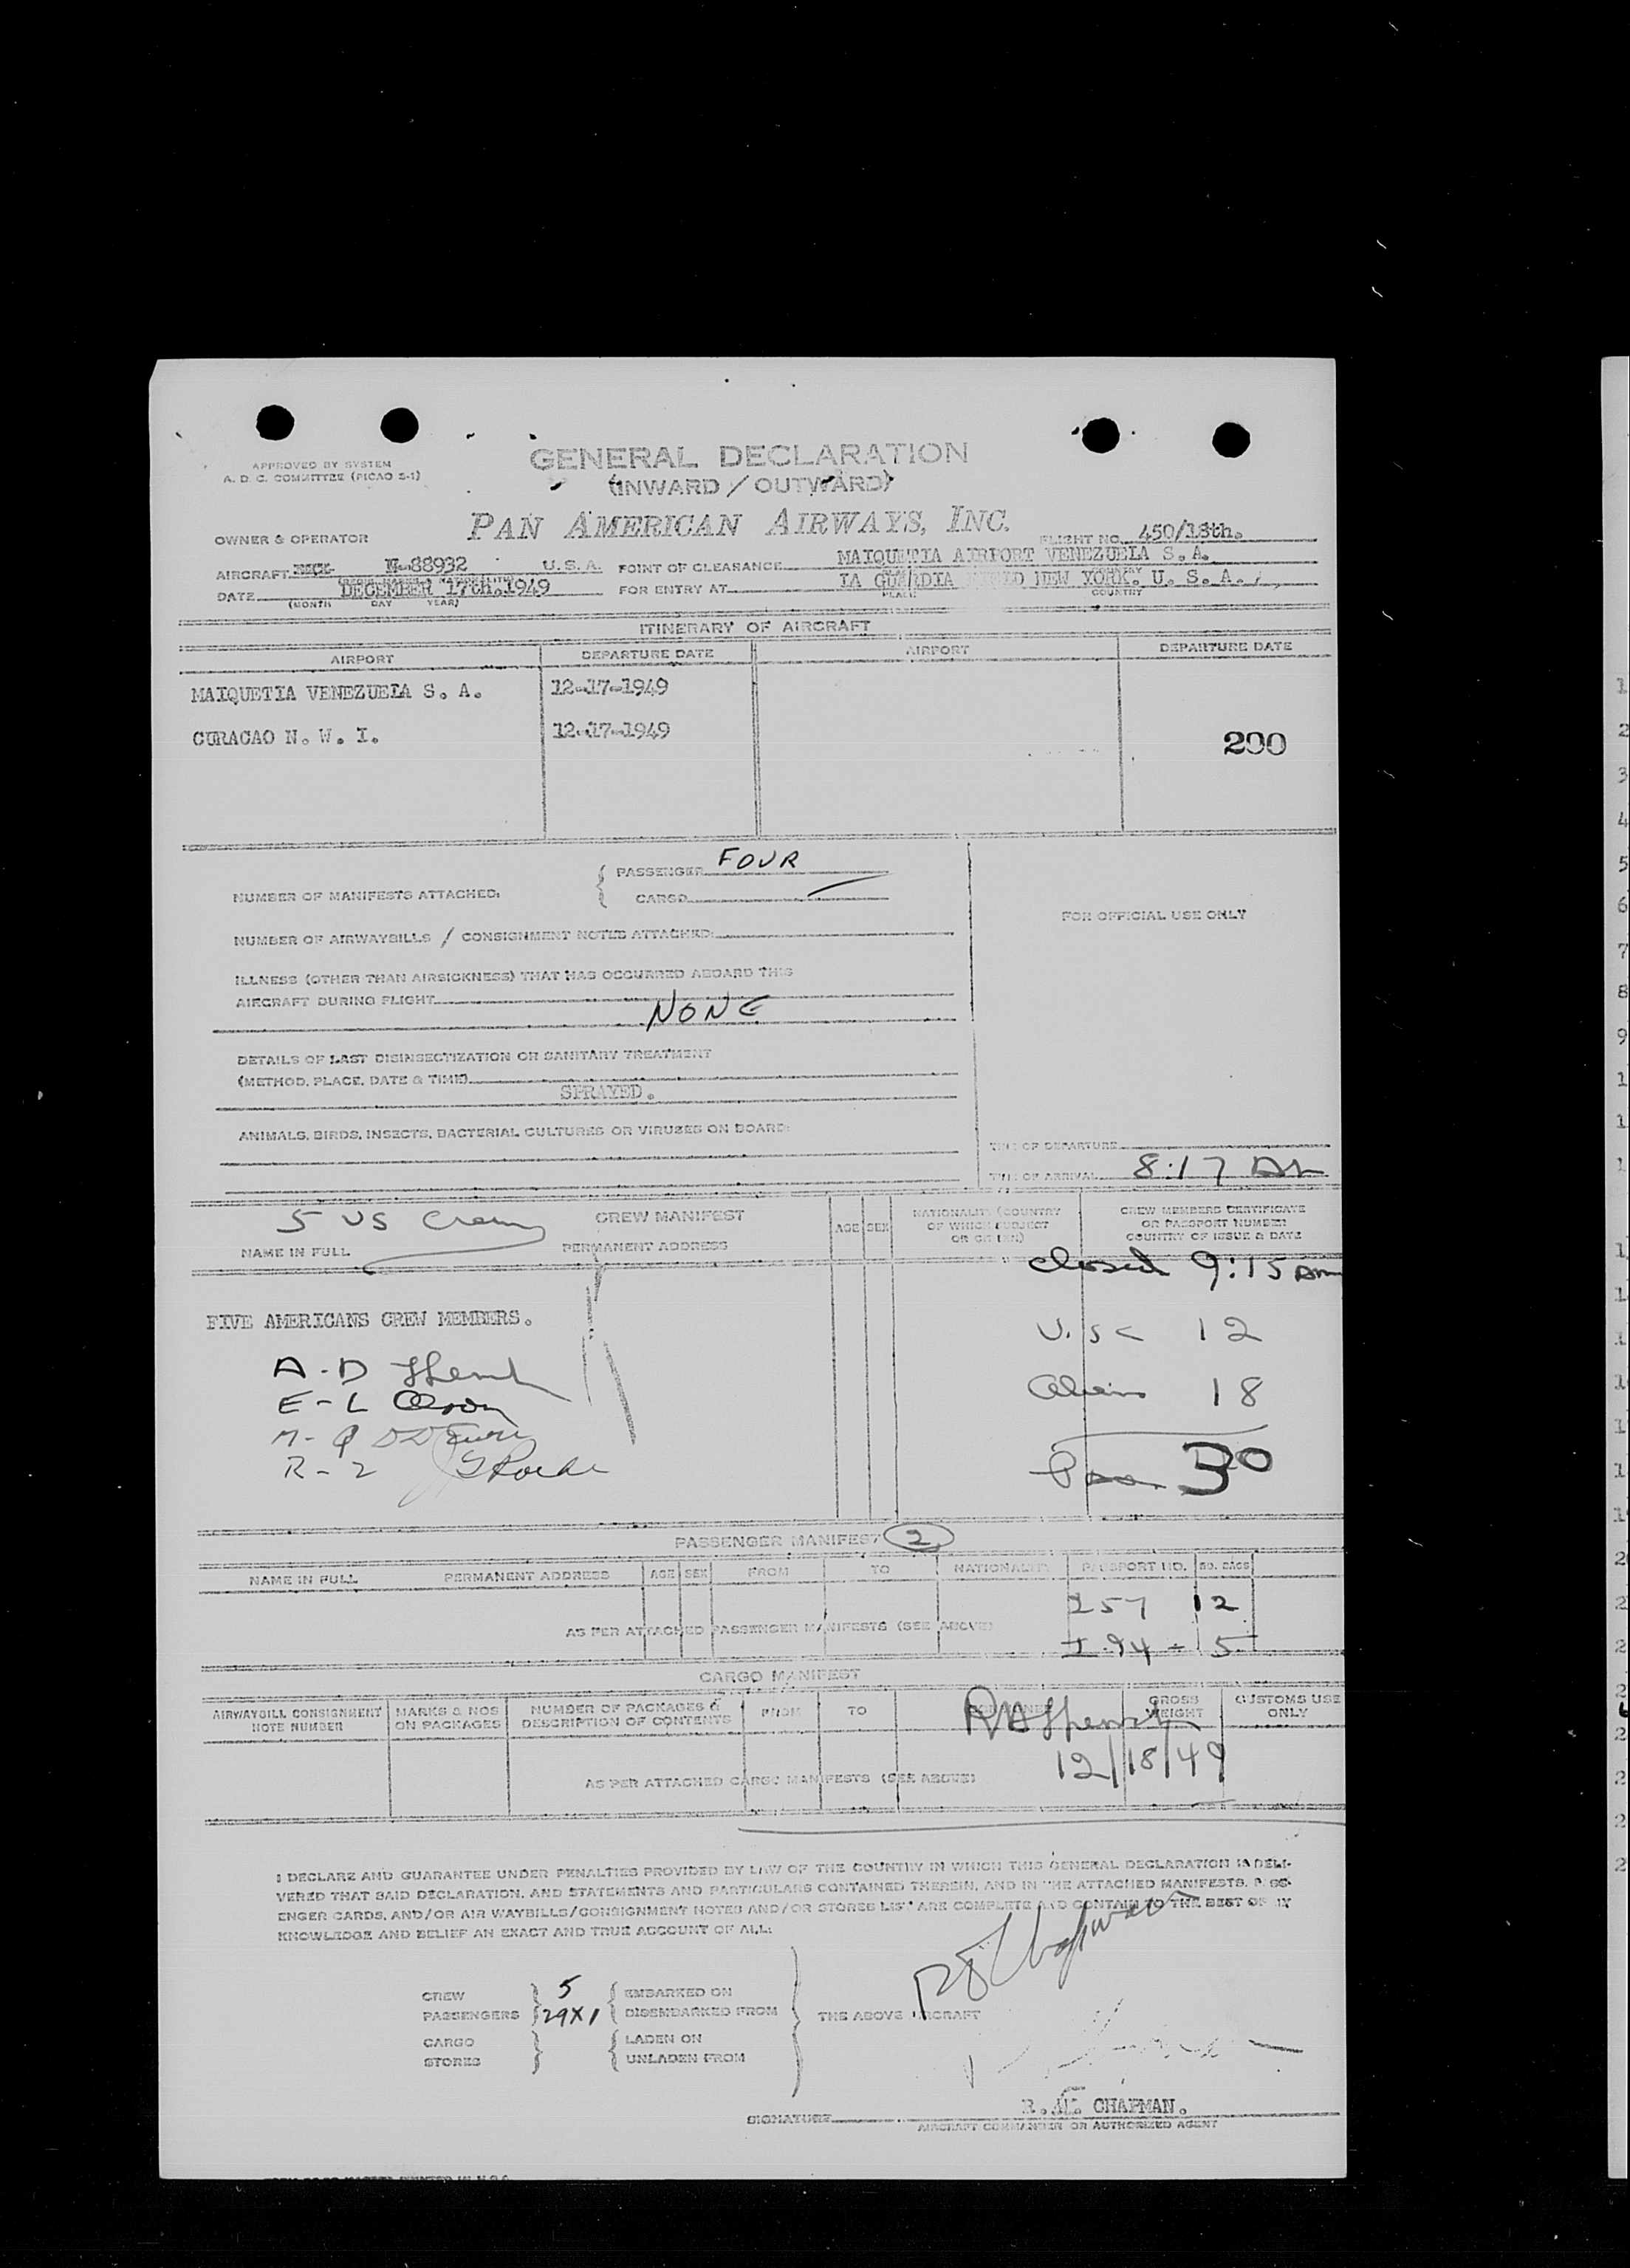 APPROVED BY SYSTEM
A. D. C. COMMITTEE (PICAO S-1)
GENERAL DECLARATION
(INWARD / OUTWARD)
PAN AMERICAN AIRWAYS, INC.
OWNER & OPERATOR
FLIGHT NO. 450/18th.
AIRCRAFT N-88932 U. S. A. POINT OF CLEARANCE MAIQUETIA AIRPORT VENEZUELA S. A.
DATE DECEMBER 17th. 1949 FOR ENTRY AT LA GUARDIA FIELD NEW YORK. U. S. A.
(MONTH DAY YEAR) PLACE COUNTRY
ITINERARY OF AIRCRAFT
AIRPORT DEPARTURE DATE AIRPORT DEPARTURE DATE
MAIQUETIA VENEZUELA S. A. 12-17-1949
CURACAO N. W. I. 12-17-1949
200
NUMBER OF MANIFESTS ATTACHED: PASSENGER FOUR
CARGO
FOR OFFICIAL USE ONLY
NUMBER OF AIRWAYBILLS / CONSIGNMENT NOTES ATTACHED:
ILLNESS (OTHER THAN AIRSICKNESS) THAT HAS OCCURRED ABOARD THIS
AIRCRAFT DURING FLIGHT
NONE
DETAILS OF LAST DISINSECTIZATION OR SANITARY TREATMENT
(METHOD, PLACE, DATE & TIME)
SPRAYED.
ANIMALS, BIRDS, INSECTS, BACTERIAL CULTURES OR VIRUSES ON BOARD:
TIME OF DEPARTURE
TIME OF ARRIVAL 8:17 AM
5 US Crew
CREW MANIFEST
NAME IN FULL PERMANENT ADDRESS AGE SEX
NATIONALITY (COUNTRY
OF WHICH SUBJECT
OR CITIZEN)
CREW MEMBERS CERTIFICATE
OR PASSPORT NUMBER
COUNTRY OF ISSUE & DATE
closed 9:15 am
FIVE AMERICANS CREW MEMBERS.
U.S C 12
A-D
Aliens 18
E-L Olson
M-Q
R-Z
Pass. 30
PASSENGER MANIFEST 2
NAME IN FULL PERMANENT ADDRESS AGE SEX FROM TO NATIONALITY PASSPORT NO. NO. BAGS
257 12
AS PER ATTACHED PASSENGER MANIFESTS (SEE ABOVE)
I-94 - 5
CARGO MANIFEST
AIRWAYBILL CONSIGNMENT
NOTE NUMBER
MARKS & NOS
ON PACKAGES
NUMBER OF PACKAGES &
DESCRIPTION OF CONTENTS
FROM TO
GROSS
WEIGHT
CUSTOMS USE
ONLY
12/18/49
AS PER ATTACHED CARGO MANIFESTS (SEE ABOVE)
I DECLARE AND GUARANTEE UNDER PENALTIES PROVIDED BY LAW OF THE COUNTRY IN WHICH THIS GENERAL DECLARATION IS DELI-
VERED THAT SAID DECLARATION, AND STATEMENTS AND PARTICULARS CONTAINED THEREIN, AND IN THE ATTACHED MANIFESTS, PASS-
ENGER CARDS, AND/OR AIR WAYBILLS/CONSIGNMENT NOTES AND/OR STORES LIST ARE COMPLETE AND CONTAIN TO THE BEST OF MY
KNOWLEDGE AND BELIEF AN EXACT AND TRUE ACCOUNT OF ALL:
CREW 5 EMBARKED ON
PASSENGERS 29X1 DISEMBARKED FROM THE ABOVE AIRCRAFT
CARGO LADEN ON
STORES UNLADEN FROM
R. CHAPMAN.
SIGNATURE
AIRCRAFT COMMANDER OR AUTHORIZED AGENT